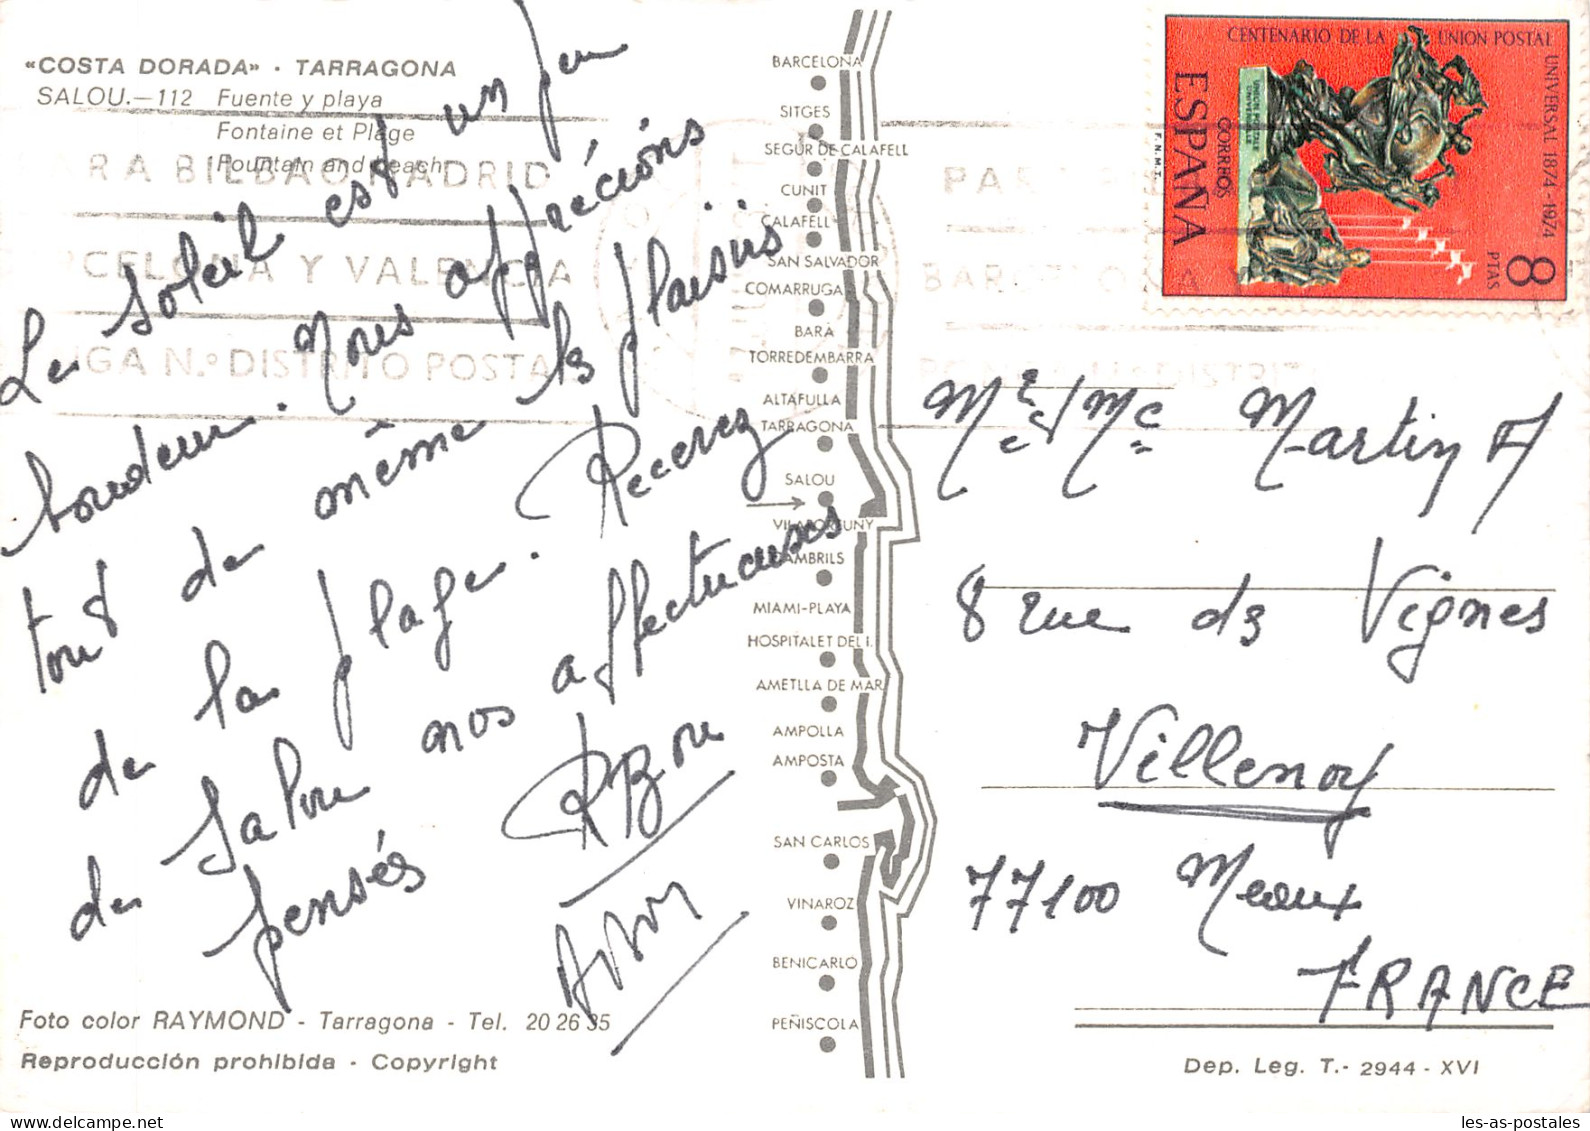 «COSTA DORADA» - TARRAGONA
SALOU.—112 Fuente y playa
Fontaine et Plage
Fountain and beach
Le soleil est un peu
boudeur. Nous apprécions
tout de même les plaisirs
de la plage. Recevez
de Salou nos affectueuses
pensés
Foto color RAYMOND - Tarragona - Tel. 20 26 35
Reproducción prohibida - Copyright
BARCELONA
SITGES
SEGUR DE CALAFELL
CUNIT
CALAFELL
SAN SALVADOR
COMARRUGA
BARÀ
TORREDEMBARRA
ALTAFULLA
TARRAGONA
SALOU
VILAFORTUNY
CAMBRILS
MIAMI-PLAYA
HOSPITALET DEL I.
AMETLLA DE MAR
AMPOLLA
AMPOSTA
SAN CARLOS
VINAROZ
BENICARLO
PEÑISCOLA
CENTENARIO DE LA UNION POSTAL
UNIVERSAL 1874-1974
ESPAÑA
CORREOS
F.N.M.T.
8 PTAS
PARA BILBAO MADRID
BARCELONA Y VALENCIA
PONGA N.º DISTRITO POSTAL
Mr et Me Martin A
8 rue des Vignes
Villenoy
77100 Meaux
FRANCE
Dep. Leg. T.- 2944 - XVI
les-as-postales